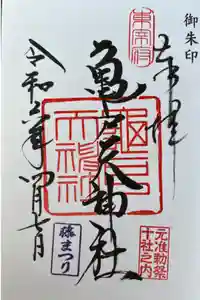 御朱印
奉拝
東宰府
亀戸天神社
亀戸天神社
元准勅祭
十社之内
令和六年四月七日
藤まつり